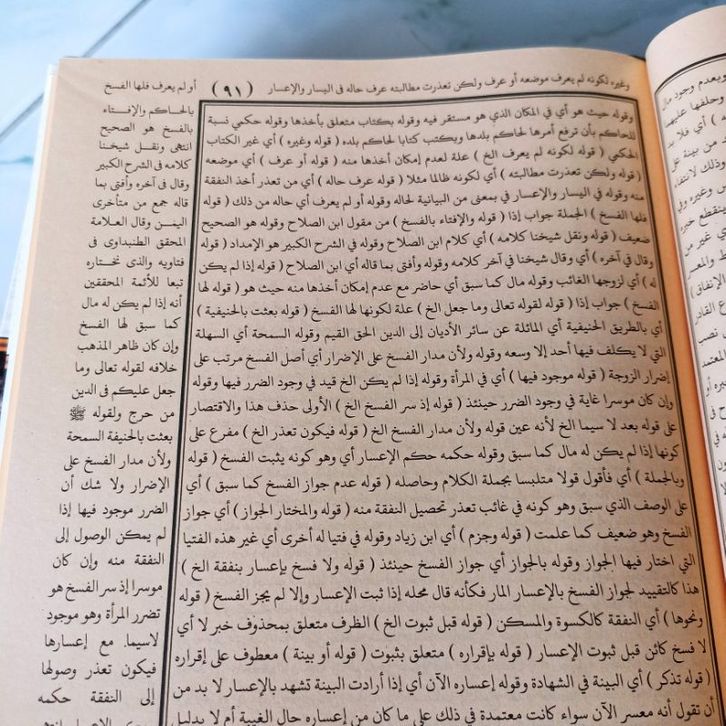 وغيره لكونه لم يعرف موضعه أو عرف ولكن تعذرت مطالبته عرف حاله فى اليسار والإعسار
( ٩١ )
أو لم يعرف فلها الفسخ
بالحاكم والإفتاء
بالفسخ هو الصحيح
انتهى ونقل شيخنا
كلامه فى الشرح الكبير
وقال فى آخره وأفتى بما
قاله جمع من متأخرى
اليمن وقال العلامة
المحقق الطنبداوى فى
فتاويه والذى نختاره
تبعا للأئمة المحققين
أنه إذا لم يكن له مال
كما سبق لها الفسخ
وإن كان ظاهر المذهب
خلافه لقوله تعالى وما
جعل عليكم فى الدين
من حرج ولقوله ﷺ
بعثت بالحنيفة السمحة
ولأن مدار الفسخ على
الإضرار ولا شك أن
الضرر موجود فيها إذا
لم يمكن الوصول إلى
النفقة منه وإن كان
موسرا إذ سر الفسخ هو
تضرر المرأة وهو موجود
لاسيما. مع إعسارها
فيكون تعذر وصولها
إلى النفقة حكمه
وقوله حيث هو أي في المكان الذي هو مستقر فيه وقوله بكتاب متعلق بأخذها وقوله حكمي نسبة
للحاكم بأن ترفع أمرها لحاكم بلدها ويكتب كتابا لحاكم بلده ( قوله وغيره ) أي غير الكتاب
الحكمي ( قوله لكونه لم يعرف الخ ) علة لعدم إمكان أخذها منه ( قوله أو عرف ) أي موضعه
( قوله ولكن تعذرت مطالبته ) أي لكونه ظالما مثلا ( قوله عرف حاله ) أي من تعذر أخذ النفقة
منه وقوله في اليسار والإعسار في بمعنى من البيانية لحاله وقوله أو لم يعرف أي حاله من ذلك ( قوله
فلها الفسخ ) الجملة جواب إذا ( قوله والإفتاء بالفسخ ) من مقول ابن الصلاح وقوله هو الصحيح
ضعيف ( قوله ونقل شيخنا كلامه ) أي كلام ابن الصلاح وقوله في الشرح الكبير هو الإمداد ( قوله
وقال في آخره ) أي وقال شيخنا في آخر كلامه وقوله وأفتى بما قاله أي ابن الصلاح ( قوله إذا لم يكن
له ) أي لزوجها الغائب وقوله مال كما سبق أي حاضر مع عدم إمكان أخذها منه حيث هو ( قوله لها
الفسخ ) جواب إذا ( قوله لقوله تعالى وما جعل الخ ) علة لكونها لها الفسخ ( قوله بعثت بالحنيفية )
أي بالطريق الحنيفية أي المائلة عن سائر الأديان إلى الدين الحق القيم وقوله السمحة أي السهلة
التي لا يكلف فيها أحد إلا وسعه وقوله ولأن مدار الفسخ على الإضرار أي أصل الفسخ مرتب على
إضرار الزوجة ( قوله موجود فيها ) أي في المرأة وقوله إذا لم يكن الخ قيد في وجود الضرر فيها وقوله
وإن كان موسرا غاية في وجود الضرر حينئذ ( قوله إذ سر الفسخ الخ ) الأولى حذف هذا والاقتصار
على قوله بعد لا سيما الخ لأنه عين قوله ولأن مدار الفسخ الخ ( قوله فيكون تعذر الخ ) مفرع على
كونها إذا لم يكن له مال كما سبق وقوله حكمه حكم الإعسار أي وهو كونه يثبت الفسخ ( قوله
وبالجملة ) أي فأقول قولا متلبسا بجملة الكلام وحاصله ( قوله عدم جواز الفسخ كما سبق ) أي
على الوصف الذي سبق وهو كونه في غائب تعذر تحصيل النفقة منه ( قوله والمختار الجواز ) أي جواز
الفسخ وهو ضعيف كما علمت ( قوله وجزم ) أي ابن زياد وقوله في فتيا له أخرى أي غير هذه الفتيا
التي اختار فيها الجواز وقوله بالجواز أي جواز الفسخ حينئذ ( قوله ولا فسخ بإعسار بنفقة الخ )
هذا كالتقييد لجواز الفسخ بالإعسار المار فكأنه قال محله إذا ثبت الإعسار وإلا لم يجز الفسخ ( قوله
ونحوها ) أي النفقة كالكسوة والمسكن ( قوله قبل ثبوت الخ ) الظرف متعلق بمحذوف خبر لا أي
لا فسخ كائن قبل ثبوت الإعسار ( قوله بإقراره ) متعلق بثبوت ( قوله أو بينة ) معطوف على إقراره
( قوله تذكر ) أي البينة في الشهادة وقوله إعساره الآن أي إذا أرادت البينة تشهد بالإعسار لا بد من
أن تقول أنه معسر الآن سواء كانت معتمدة في ذلك على ما كان من إعساره حال الغيبة أم لا بدليل